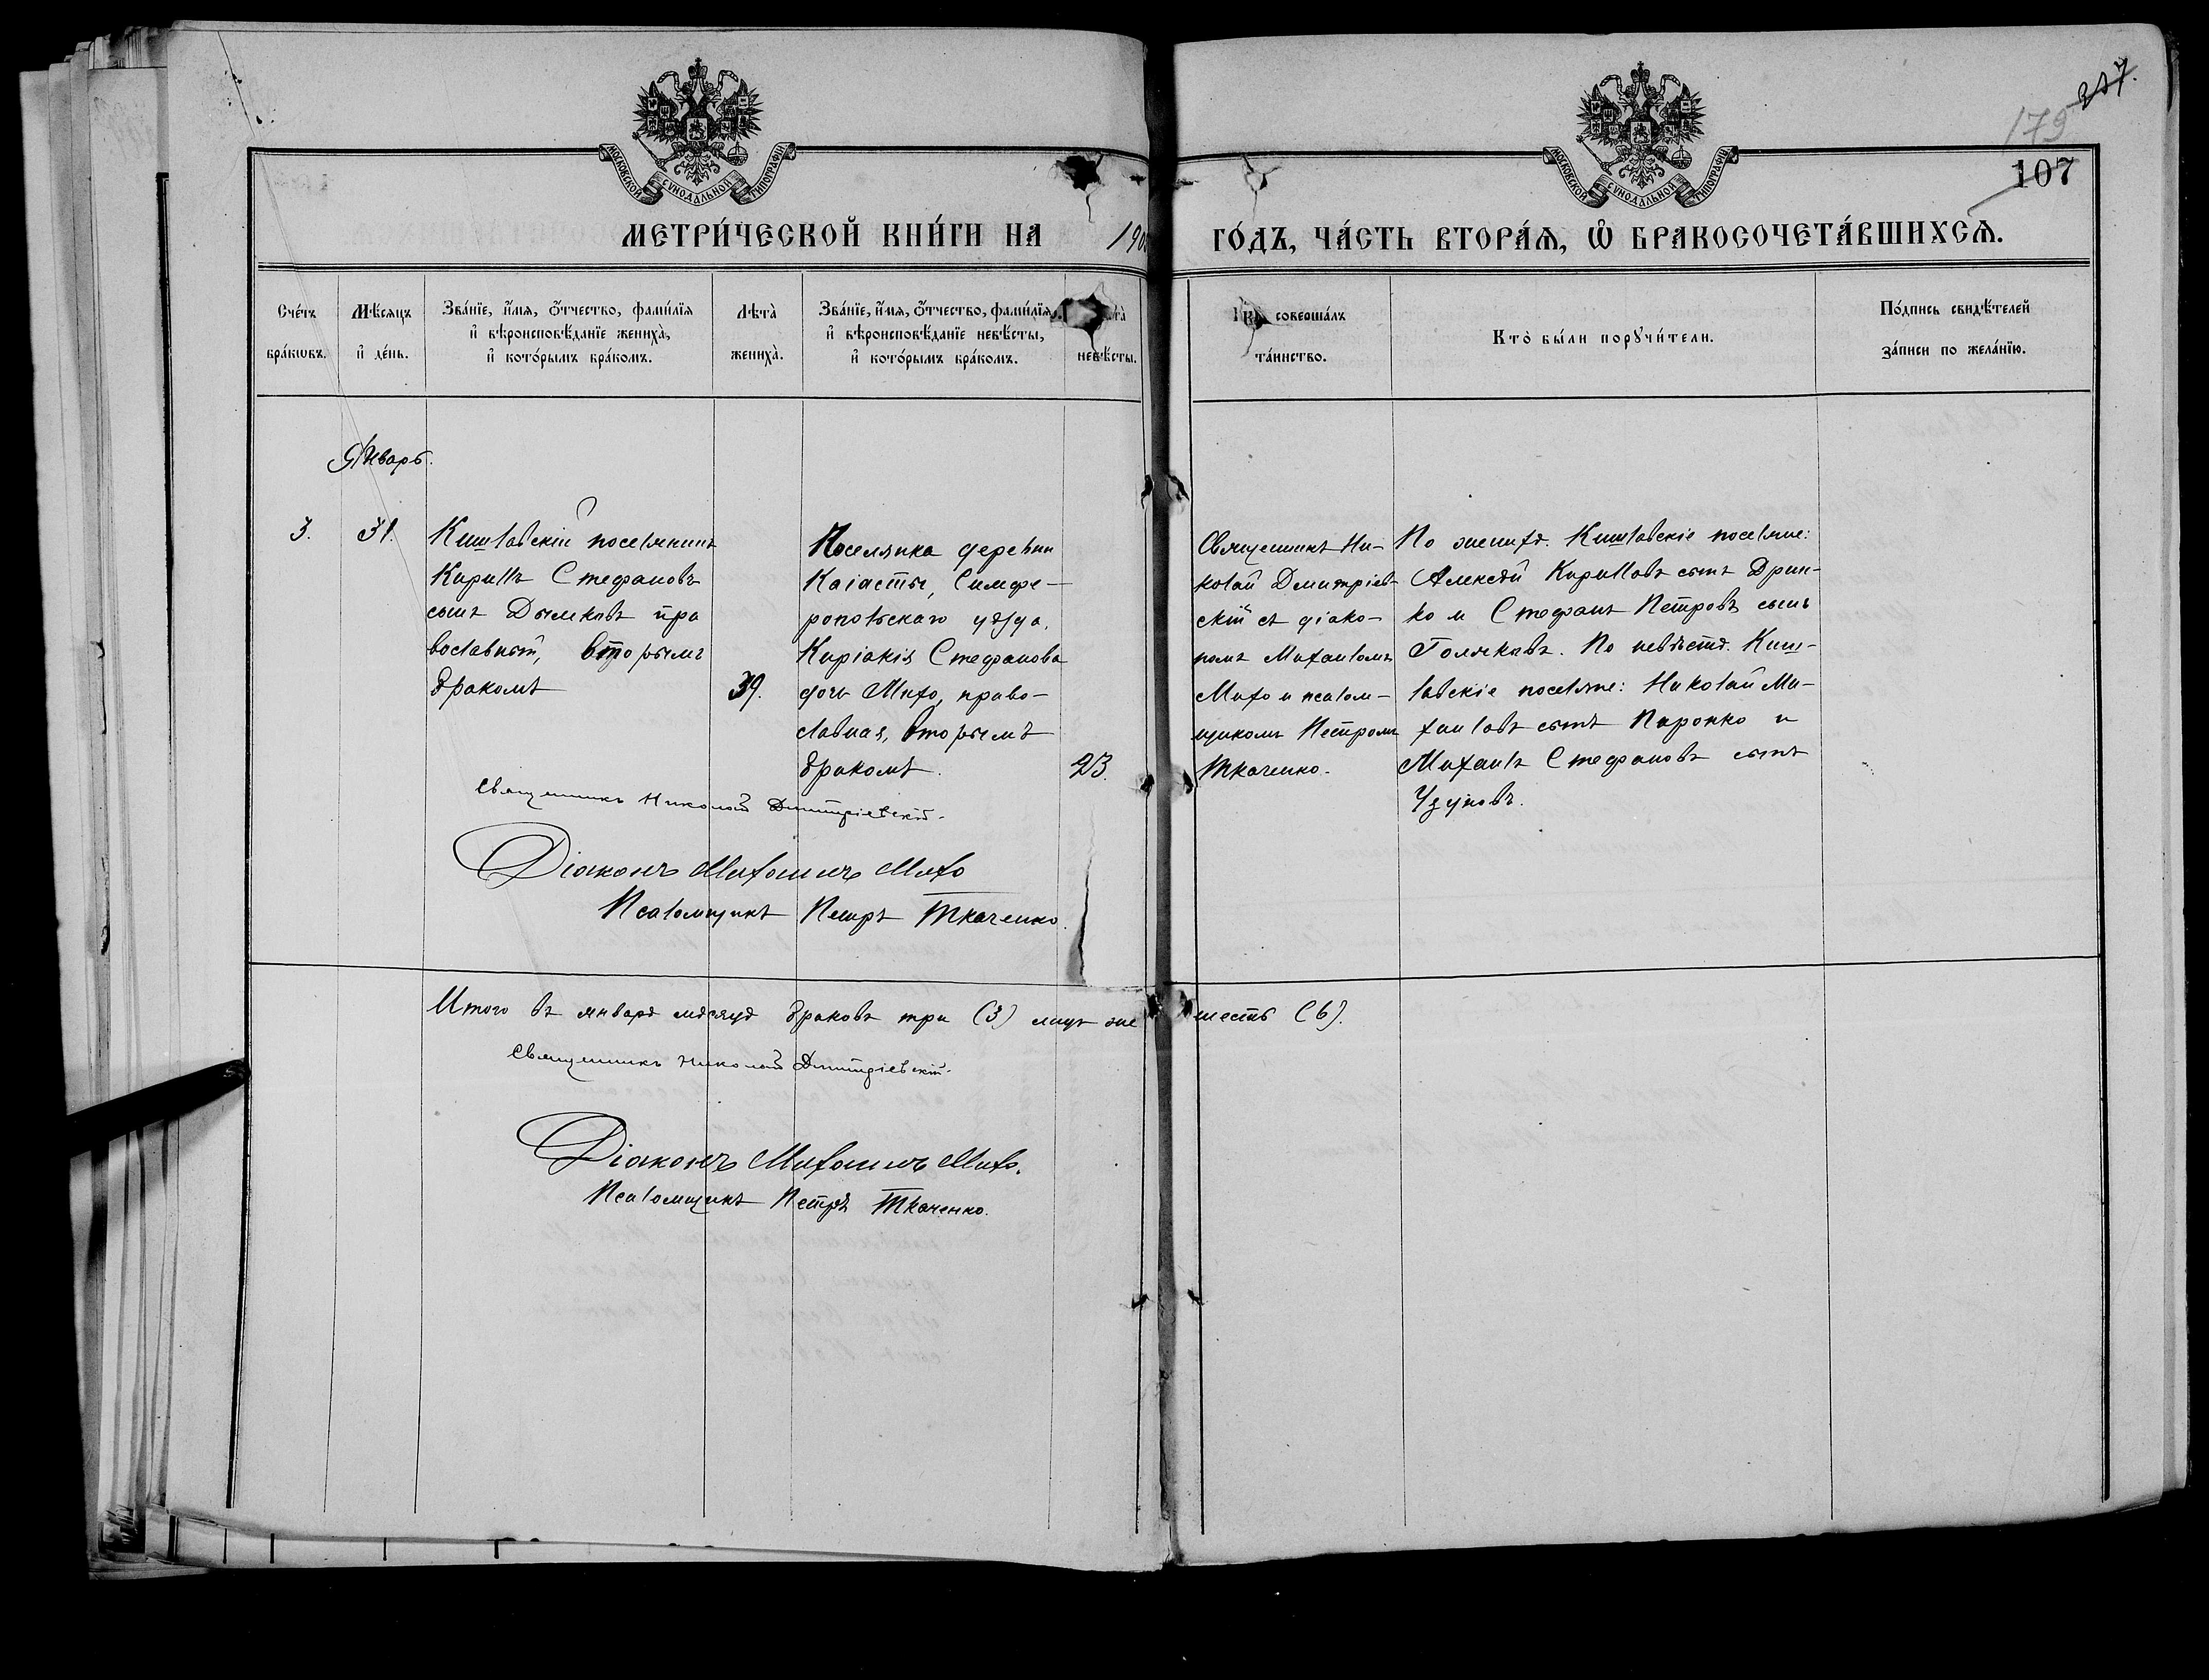 МОСКОВСКОЙ СѴНОДАЛЬНОЙ ТИПОГРАФІИ
МОСКОВСКОЙ СѴНОДАЛЬНОЙ ТИПОГРАФІИ
179
107
МЕТРИ́ЧЕСКОЙ КНИ́ГИ НА 190
ГО́ДЪ, ЧА́СТЬ ВТОРА́Ѧ, Ѡ҆ БРАКОСОЧЕТА́ВШИХСѦ.
Сче́тъ
бра́кѡвъ.
Мѣ́сѧцъ
и҆ де́нь.
Зва́нїе, и҆́мѧ, ѻ҆́тчество, фами́лїѧ
и҆ вѣроисповѣ́данїе жениха̀,
и҆ кото́рымъ бра́комъ.
Лѣта̀
жениха̀.
Зва́нїе, и҆́мѧ, ѻ҆́тчество, фами́лїѧ
и҆ вѣроисповѣ́данїе невѣ́сты,
и҆ кото́рымъ бра́комъ.
невѣ́сты.
совершáлъ
та́инство.
Кто̀ бы́ли порꙋчи́тели.
По́дпись свидѣ́телей
за́писи по жела́нїю.
Январь.
3.
31.
Кишлавскій поселянинъ
Кириллъ Стефановъ
сынъ Дымковъ пра
вославный, вторымъ
бракомъ
39.
Поселянка деревни
Каіасты, Симфе-
ропольскаго уѣзда,
Киріакія Стефанова
дочь Михо, право-
славная, вторымъ
бракомъ.
23.
Священникъ Ни-
колай Дмитріев-
скій съ діако-
номъ Михаиломъ
Михо и псалом-
щикомъ Петромъ
Ткаченко.
По женихѣ. Кишлавскіе поселяне:
Алексѣй Кирилловъ сынъ Дрин-
ко и Стефанъ Петровъ сынъ
Поляковъ. По невѣстѣ. Киш-
лавскіе поселяне: Николай Ми-
хаиловъ сынъ Пиронко и
Михаилъ Стефановъ сынъ
Узуновъ.
Священникъ Николай Дмитріевскій.
Діаконъ Михаилъ Михо
Псаломщикъ Петръ Ткаченко.
Итого въ январѣ мѣсяцѣ браковъ три (3) лицъ же шесть (6).
Священникъ Николай Дмитріевскій.
Діаконъ Михаилъ Михо.
Псаломщикъ Петръ Ткаченко.